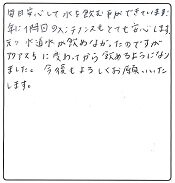 毎日安心して水を飲む事ができています。
年に1度のメンテナンスもとても安心します。
元々水道水が飲めなかったのですが
アクアスに変わってから飲めるようになり
ました。今後もよろしくお願いいたし
します。